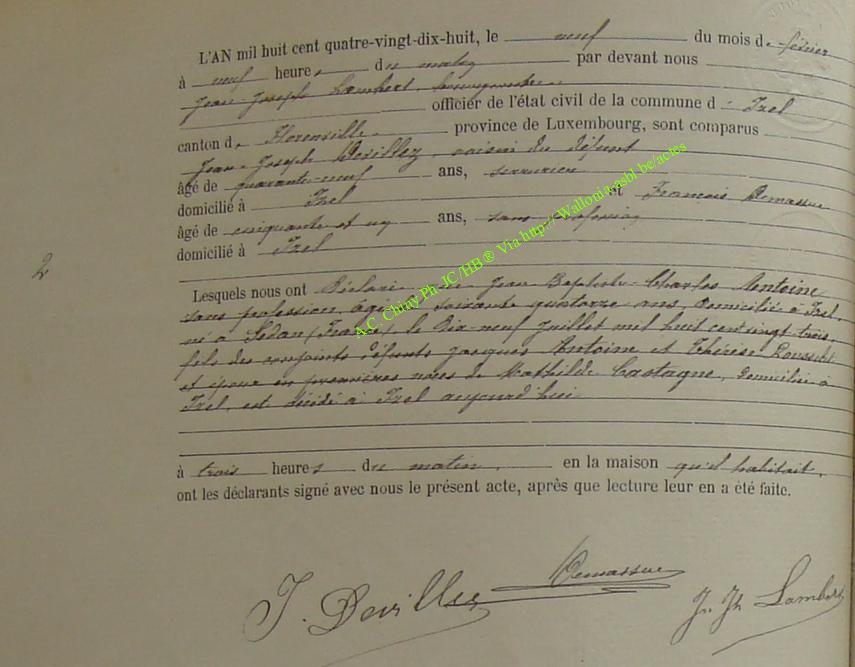 L'AN mil huit cent quatre-vingt-dix-huit, le neuf du mois de février
à neuf heures du matin par devant nous
Jean Joseph Lambert, bourgmestre
officier de l'état civil de la commune d' Izel
canton de Florenville province de Luxembourg, sont comparus
Jean-Joseph Devillez, voisin du défunt
âgé de quarante-neuf ans, serrurier
domicilié à Izel et François Demassue
âgé de cinquante et un ans, sans profession
domicilié à Izel
2
Lesquels nous ont déclaré que Jean Baptiste Charles Antoine
sans profession, âgé de soixante quatorze ans, domicilié à Izel,
né à Sedan (France) le dix-neuf juillet mil huit cent vingt trois,
fils des conjoints défunts Jacques Antoine et Thérèse
et époux en premières noces de Mathilde Castagne, domiciliée à
Izel, est décédé à Izel aujourd'hui
à trois heures du matin, en la maison qu'il habitait,
ont les déclarants signé avec nous le présent acte, après que lecture leur en a été faite.
A.C. Chiny Ph-JC/HB ® Via http://Wallonia.asbl.be/actes
J. Devillez Demassue J. Jh Lambert